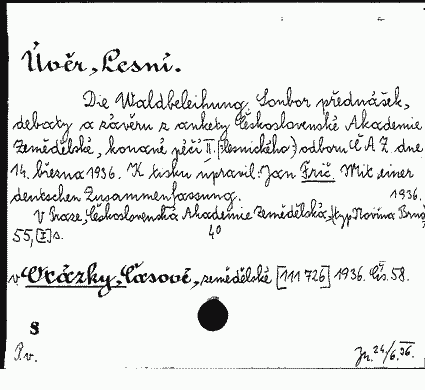 Úvěr, Lesní.
Die Waldbeleihung. Sonbor přednášek,
debaty a závěru z ankety Československé Akademie
Zemědělské, konané péčí II. (lesnického) odboru ČAZ dne
14. března 1936. K tisku upravil: Jan Frič. Mit einer
deutschen Zusammenfassung. 1936.
V Praze, Československá Akademie Zemědělská, (typ Novina Brno)
55, [I] s. 4°
v Otázky, Časové, zemědělské [111 726] 1936. Čís. 58.
§
P.v. 24/6.36.